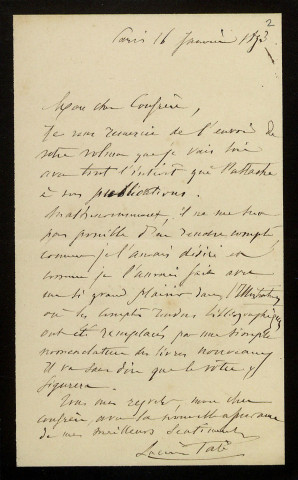 2
Paris 16 Janvier 1893
Mon cher Confrère,
Je vous remercie de l'envoi de
votre volume que je vais lire
avec tout l'intérêt que j'attache
à vos publications.
Malheureusement, il ne me sera
pas possible d'en rendre compte
comme je l'aurais désiré et
comme je l'aurais fait avec
un si grand plaisir dans l'Illustration
où les comptes rendus bibliographiques
ont été remplacés par une simple
nomenclature des livres nouveaux
Il va sans dire que le vôtre y
figurera.
Vous mes regrets, mon cher
confrère, avec la nouvelle assurance
de mes meilleurs sentiments
Lucien Paté